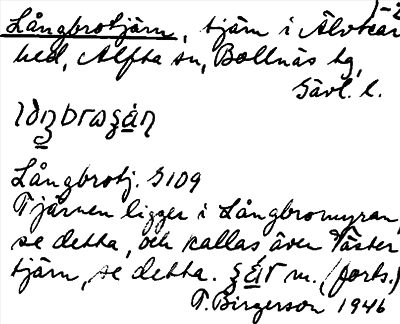 1-2
Långbrotjärn, tjärn i Älvkar-
hed, Alfta sn, Bollnäs tg,
Gävl. l.
Långbrotj. G109
Tjärnen ligger i Långbromyran,
se detta, och kallas även Väster-
tjärn, se detta. m. (forts.)
T. Birgerson 1946